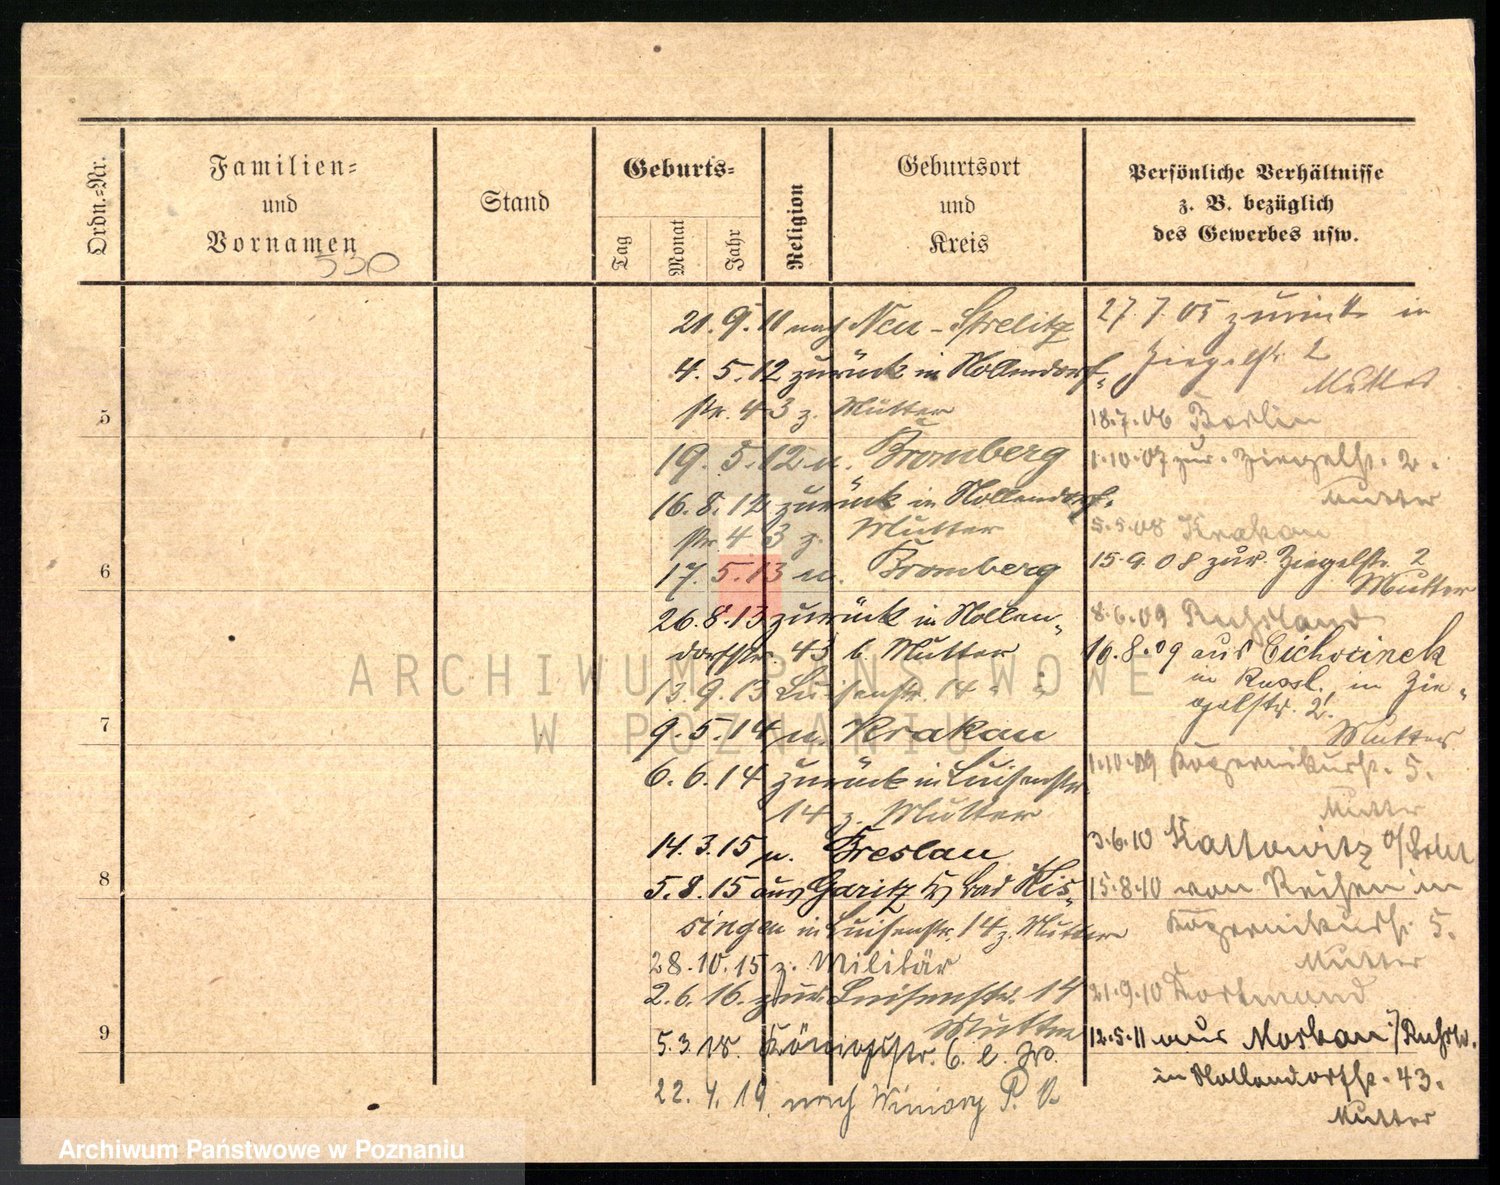 Ordn.-Nr.
Familien-
und
Vornamen
530
Stand
Geburts-
Tag
Monat
Jahr
Religion
Geburtsort
und
Kreis
Persönliche Verhältnisse
z. B. bezüglich
des Gewerbes usw.
5
6
7
8
9
21. 9. 11 nach Neu-Strelitz
4. 5. 12 zurück in Nollendorf-
str. 43 z. Mutter
19. 5. 12 n. Bromberg
16. 8. 12 zurück in Nollendorf-
str. 43 z. Mutter
17. 5. 13 n. Bromberg
26. 8. 13 zurück in Nollen-
dorfstr. 43 b. Mutter
13. 9. 13 Luisenstr. 14 " "
9. 5. 14 n. Krakau
6. 6. 14 zurück in Luisenstr.
14 z. Mutter
14. 3. 15 n. Breslau
5. 8. 15 aus Garitz b Bad Kis-
singen in Luisenstr. 14 z. Mutter
28. 10. 15 z. Militär
2. 6. 16. zur. Luisenstr. 14
Mutter
5. 3. 18. Königstr. 6.
22. 4. 19. nach Winiary P. O.
27. 7. 05 zurück in
Ziegelstr. 2
Mutter
18. 7. 06 Berlin
1. 10. 07 zur. Ziegelstr. 2.
Mutter
5. 5. 08 Krakau
15. 9. 08 zur. Ziegelstr. 2
Mutter
8. 6. 09 Russland
16. 8. 09 aus Cichocinek
in Russl. in Zie-
gelstr. 2.
Mutter
1. 10. 09 5.
Mutter
3. 6. 10 Kattowitz
15. 8. 10 von Reisen in
5.
Mutter
21. 9. 10 Dortmund
12. 5. 11 aus Moskau /Russl.
in Nollendorfstr. 43.
Mutter
ARCHIWUM PAŃSTWOWE
W POZNANIU
Archiwum Państwowe w Poznaniu